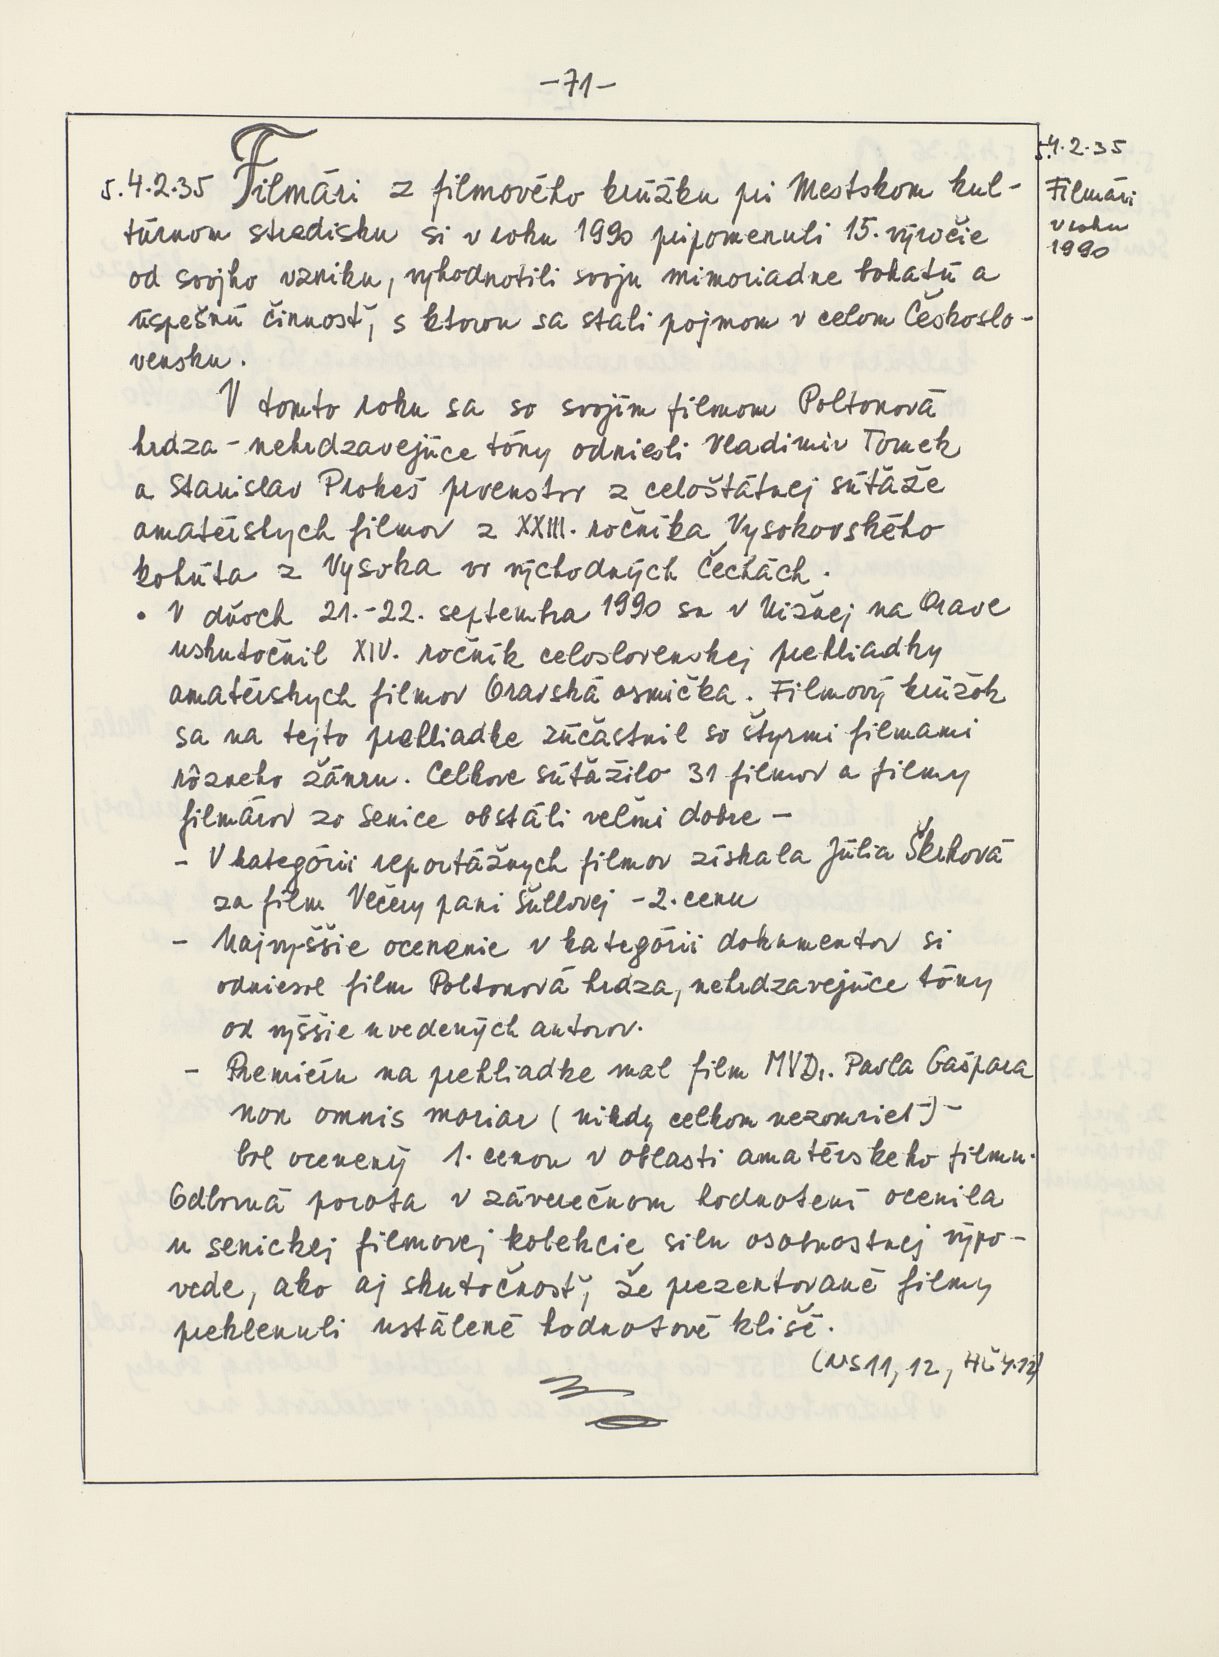 -71-
5.4.2.35 Filmári z filmového krúžku pri Mestskom kul-
túrnom stredisku si v roku 1990 pripomenuli 15. výročie
od svojho vzniku, vyhodnotili svoju mimoriadne bohatú a
úspešnú činnosť, s ktorou sa stali pojmom v celom Českoslo-
vensku.
V tomto roku sa so svojím filmom Poltonová
hrdza - nehrdzavejúce tóny odniesli Vladimír Tomek
a Stanislav Prokeš prvenstvo z celoštátnej súťaže
amatérskych filmov z XXIII. ročníka Vysokovského
kohúta z Vysoka vo východných Čechách.
• V dňoch 21.-22. septembra 1990 sa v Nižnej na Orave
uskutočnil XIV. ročník celoslovenskej prehliadky
amatérskych filmov Oravská osmička. Filmový krúžok
sa na tejto prehliadke zúčastnil so štyrmi filmami
rôzneho žánru. Celkove súťažilo 31 filmov a filmy
filmárov zo Senice obstáli veľmi dobre -
- V kategórii reportážnych filmov získala Júlia Škrhová
za film Večery pani Šullovej - 2. cenu
- Najvyššie ocenenie v kategórii dokumentov si
odniesol film Poltonová hrdza, nehrdzavejúce tóny
od vyššie uvedených autorov.
- Premiéru na prehliadke mal film MVDr. Pavla Gašpara
non omnis moriar (nikdy celkom nezomrieť) -
bol ocenený 1. cenou v oblasti amatérskeho filmu.
Odborná porota v záverečnom hodnotení ocenila
u senickej filmovej kolekcie silu osobnostnej výpo-
vede, ako aj skutočnosť, že prezentované filmy
preklenuli ustálené hodnotové klišé.
(NS 11, 12, HČ 4.12)
5.4.2.35
Filmári
v roku
1990